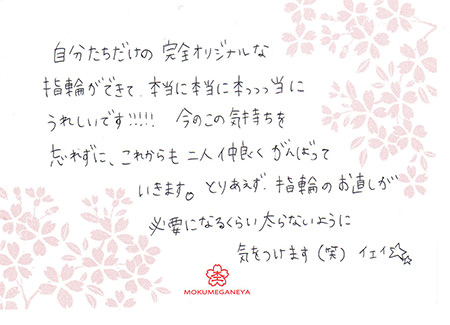 自分たちだけの 完全オリジナルな
指輪ができて、本当に本当に本っっっ当に
うれしいです!!!!! 今のこの気持ちを
忘れずに、これからも二人仲良くがんばって
いきます。とりあえず、指輪のお直しが
必要になるくらい太らないように
気をつけます(笑) イェイ☆☆
MOKUMEGANEYA